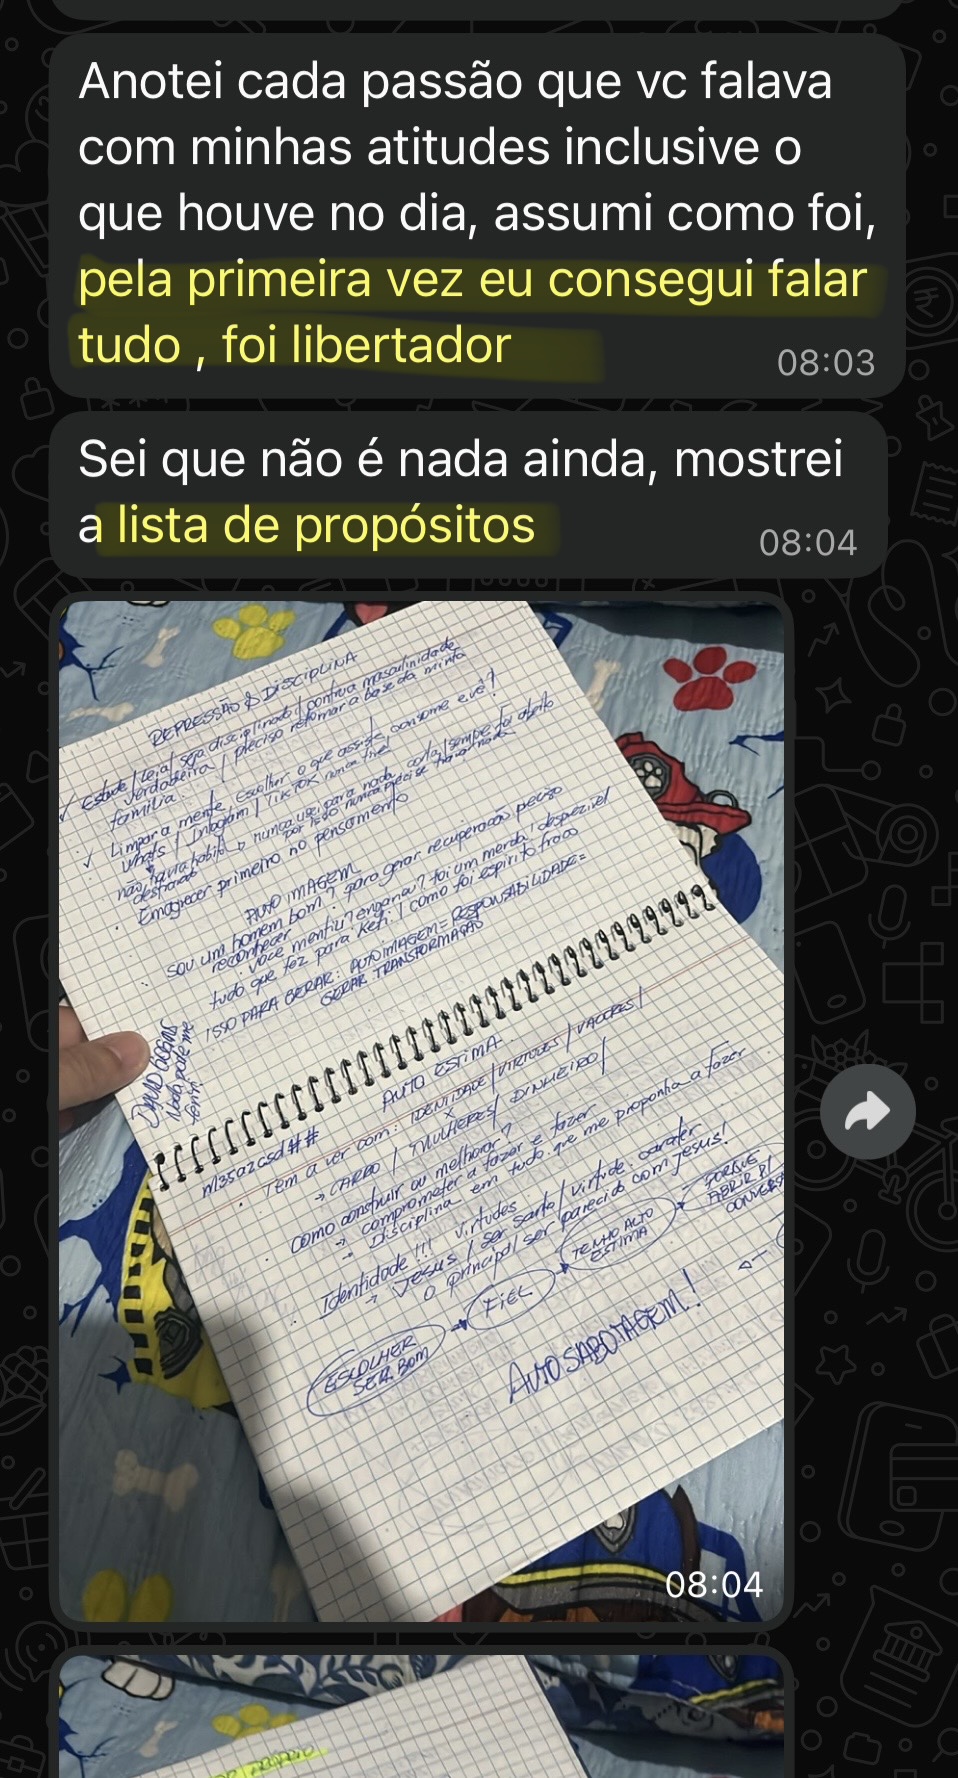 Anotei cada passão que vc falava
com minhas atitudes inclusive o
que houve no dia, assumi como foi,
pela primeira vez eu consegui falar
tudo , foi libertador
08:03
Sei que não é nada ainda, mostrei
a lista de propósitos
08:04
REPRESSÃO & DISCIPLINA
Estude / Leia / seja disciplinado / construa masculinidade
verdadeira / preciso retomar a base da minha
família
Limpar a mente, escolher o que assiste, consome e vê?
Whats / Instagram / TIKTOK nunca tive
não havia hábito nunca usei para nada, conta sempre foi aberto
por isso nunca precisei
Emagrecer primeiro no pensamento
AUTO IMAGEM
SOU um homem bom? para gerar recuperação preciso
reconhecer
você mentiu? enganou? foi um merda, desprezível
tudo que fez para Keti / como foi espírito fraco
ISSO PARA GERAR: AUTOIMAGEM = RESPONSABILIDADE =
GERAR TRANSFORMAÇÃO
DAVID GOGGINS
Nada pode me
ferir
AUTO ESTIMA
Tem a ver com: IDENTIDADE / VIRTUDES / VALORES /
X
→ CARRO / MULHERES / DINHEIRO /
como construir ou melhorar?
→ comprometer a fazer e fazer
→ Disciplina em tudo que me proponha a fazer
Identidade!!! virtudes
→ Jesus / ser santo / virtude, caráter
O principal ser parecido com Jesus!
ESCOLHER
SER BOM
FIEL
TENHO ALTO
ESTIMA
PORQUE
ABRIR P/
AUTOSABOTAGEM!
08:04